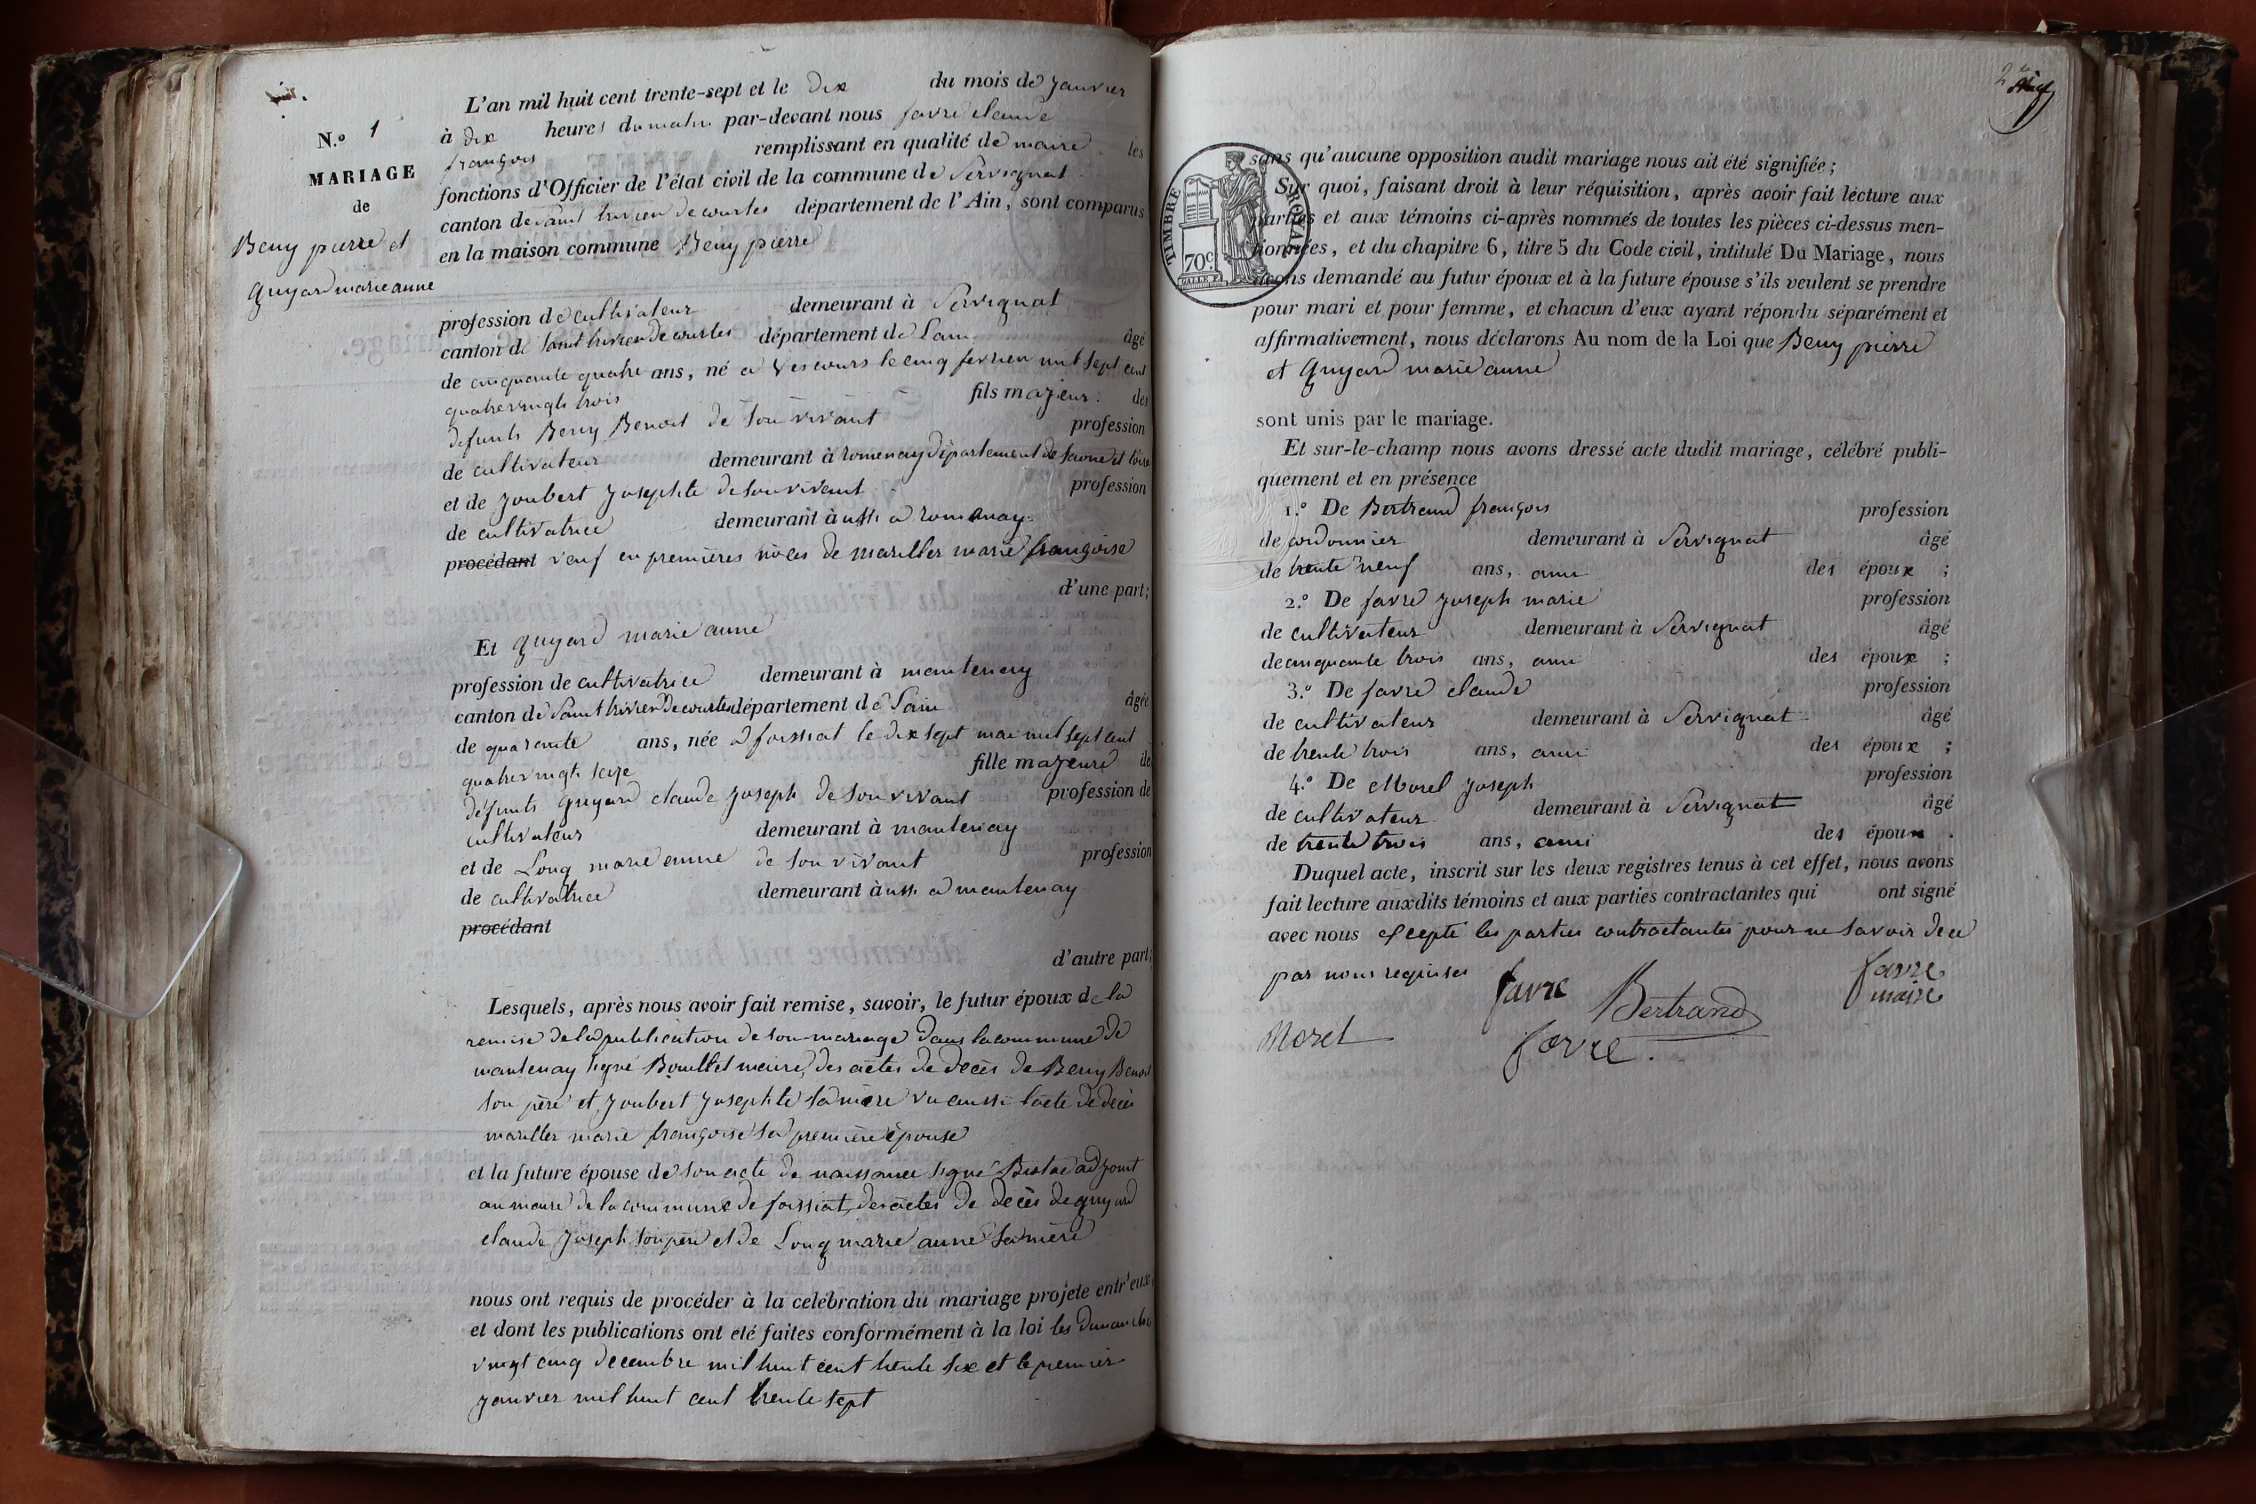 N.º 1
MARIAGE
de
Beny pierre et
guyard marie anne
L'an mil huit cent trente-sept et le dix du mois de janvier
à dix heures du matin par-devant nous favre claude
françois remplissant en qualité de maire les
fonctions d'Officier de l'état civil de la commune de Servignat
canton de Saint trivier de courtes département de l'Ain, sont comparus
en la maison commune Beny pierre
profession de cultivateur demeurant à Servignat
canton de Saint trivier de courtes département de Lain âgé
de cinquante quatre ans, né a Vescours le cinq fevrier mil sept cent
quatrevingt trois fils majeur des
defunts Beny Benoit de son vivant profession
de cultivateur demeurant à romenay département de saone et loire
et de joubert josephte de son vivant profession
de cultivatrice demeurant à ussi a romenay
procédant veuf en premières noces de mariller marie françoise
d'une part;
Et guyard marie anne
profession de cultivatrice demeurant à mantenay
canton de Saint trivier de courtes département de Lain âgée
de quarante ans, née a foissiat le dix sept mai mil sept cent
quatrevingt seize fille majeure de
défunts guyard claude joseph de son vivant profession de
cultivateur demeurant à mantenay
et de Long marie anne de son vivant profession
de cultivatrice demeurant à ussi a mantenay
procédant
d'autre part;
Lesquels, après nous avoir fait remise, savoir, le futur époux de la
remise de la publication de son mariage dans la commune de
mantenay signé Bouillet maire, des actes de décès de Beny Benoit
son père et joubert josephte sa mère vu aussi l'acte de décès
mariller marie françoise sa première épouse
et la future épouse de son acte de naissance signé adjoint
au maire de la commune de foissiat, des actes de décès de guyard
claude joseph son père et de Long marie anne sa mère
nous ont requis de procéder à la célébration du mariage projeté entr'eux
et dont les publications ont été faites conformément à la loi les dimanches
vingt cinq decembre mil huit cent trente six et le premier
janvier mil huit cent trente sept
2
sans qu'aucune opposition audit mariage nous ait été signifiée;
Sur quoi, faisant droit à leur réquisition, après avoir fait lecture aux
parties et aux témoins ci-après nommés de toutes les pièces ci-dessus men-
tionnées, et du chapitre 6, titre 5 du Code civil, intitulé Du Mariage, nous
avons demandé au futur époux et à la future épouse s'ils veulent se prendre
pour mari et pour femme, et chacun d'eux ayant répondu séparément et
affirmativement, nous déclarons Au nom de la Loi que Beny pierre
et guyard marie anne
sont unis par le mariage.
Et sur-le-champ nous avons dressé acte dudit mariage, célébré publi-
quement et en présence
1.º De Bertrand françois profession
de cordonnier demeurant à Servignat âgé
de trente neuf ans, ami des époux ;
2.º De favre joseph marie profession
de cultivateur demeurant à Servignat âgé
de cinquante trois ans, ami des époux ;
3.º De favre claude profession
de cultivateur demeurant à Servignat âgé
de trente trois ans, ami des époux ;
4.º De Morel joseph profession
de cultivateur demeurant à Servignat âgé
de trente trois ans, ami des époux .
Duquel acte, inscrit sur les deux registres tenus à cet effet, nous avons
fait lecture auxdits témoins et aux parties contractantes qui ont signé
avec nous excepté les parties contractantes pour ne savoir de ce
par nous requises
favre Bertrand favre
maire
Morel favre
TIMBRE ROYAL
70c